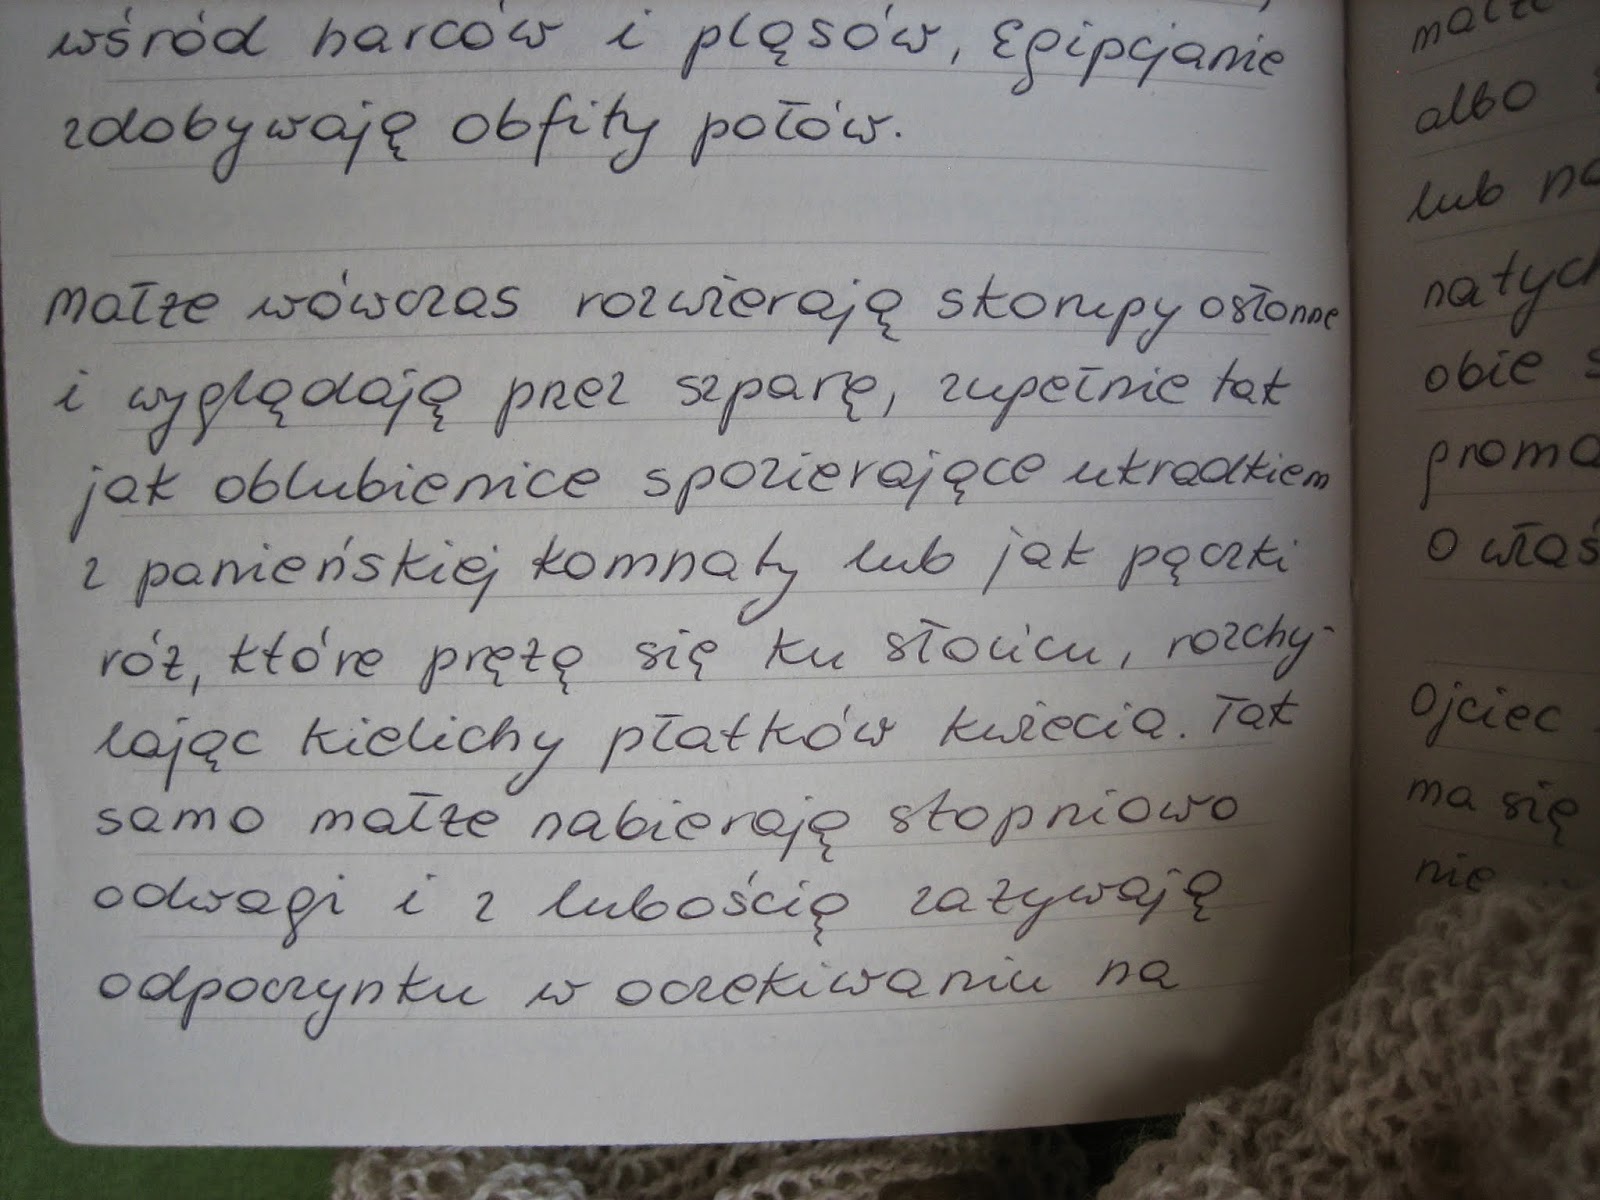 wśród harców i pląsów, Egipcjanie
zdobywają obfity połów.
małże wówczas rozwierają skorupy osłonne
i wyglądają przez szparę, zupełnie tak
jak oblubienice spozierające ukradkiem
z panieńskiej komnaty lub jak pączki
róż, które prężą się ku słońcu, rozchy-
lając kielichy płatków kwiecia. Tak
samo małże nabierają stopniowo
odwagi i z lubością zażywają
odpoczynku w oczekiwaniu na
albo
lub
obie
o
Ojciec
ma się
nie